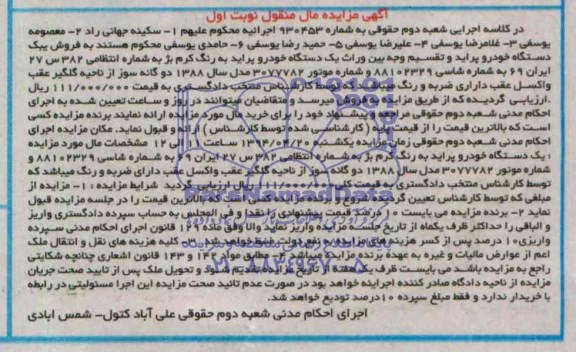 آگهی مزایده مال منقول نوبت اول
در کلاسه اجرایی شعبه دوم حقوقی به شماره ۹۳۰۴۵۳ اجرائیه محکوم علیهم ۱- سکینه جهانی راد ۲- معصومه
یوسفی ۳- غلامرضا یوسفی ۴- علیرضا یوسفی ۵- حمید رضا یوسفی ۶- حامدی یوسفی محکوم هستند به فروش یک
دستگاه خودرو پراید و تقسیم وجه بین وراث یک دستگاه خودرو پراید به رنگ کرم بژ به شماره انتظامی ۳۸۲ س ۲۷
ایران ۶۹ به شماره شاسی ۸۸۱۰۲۳۲۹ و شماره موتور ۳۰۷۷۷۸۲ مدل سال ۱۳۸۸ دو گانه سوز از ناحیه گلگیر عقب
واکسل عقب دارای ضربه و رنگ میباشد که توسط کارشناس منتخب دادگستری به قیمت ۱۱۱/۰۰۰/۰۰۰ ریال
ارزیابی گردیده که از طریق مزایده به فروش میرسد و متقاضیان میتوانند در روز و ساعت تعیین شده به اجرای
احکام مدنی شعبه دوم حقوقی مراجعه و پیشنهاد خود را برای خرید مال مورد مزایده ارائه نمایند برنده مزایده کسی
است که بالاترین قیمت را از قیمت پایه (کارشناسی شده توسط کارشناس) ارائه و قبول نماید. مکان مزایده اجرای
احکام شعبه دوم حقوقی زمان مزایده یکشنبه ۱۳۹۴/۰۴/۲۰ ساعت ۱۱ الی ۱۲ مشخصات مال مورد مزایده
: یک دستگاه خودرو پراید به رنگ کرم بژ به شماره انتظامی ۳۸۲ س ۲۷ ایران ۶۹ به شماره شاسی ۸۸۱۰۲۳۲۹ و
شماره موتور ۳۰۷۷۷۸۲ مدل سال ۱۳۸۸ دو گانه سوز از ناحیه گلگیر عقب واکسل عقب دارای ضربه و رنگ میباشد که
توسط کارشناس منتخب دادگستری به قیمت ۱۱۱/۰۰۰/۰۰۰ ریال ارزیابی گردید شرایط مزایده: ۱- مزایده از
مبلغی که توسط کارشناس تعیین گردیده شروع و برنده مزایده کسی است که بالاترین قیمت را در جلسه مزایده قبول
نماید ۲- برنده مزایده می بایست ۱۰ درصد قیمت پیشنهادی را نقدا و فی المجلس به حساب سپرده دادگستری واریز
و الباقی را حداکثر ظرف یکماه از تاریخ جلسه مزایده واریز نماید والا وفق ماده ۱۲۹ قانون اجرای احکام مدنی سپرده
واریزی ۱۰ درصد پس از کسر هزینه های مزایده به نفع دولت ضبط خواهد شد ۳- کلیه هزینه های نقل و انتقال ملک
اعم از عوارض مالیات و غیره به عهده برنده مزایده میباشد ۴- مطابق مواد ۱۴۲ و ۱۴۳ قانون اشعاری چنانچه شکایتی
راجع به مزایده باشد می بایست ظرف یک هفته از تاریخ مزایده تقدیم شود و تحویل ملک پس از تایید صحت جریان
مزایده از ناحیه دادگاه صادر کننده اجرائیه خواهد بود در صورت عدم تائید صحت مزایده این اجرا مسئولیتی در رابطه
با خریدار ندارد و فقط مبلغ سپرده ۱۰درصد تودیع خواهد شد.
اجرای احکام مدنی شعبه دوم حقوقی علی آباد کتول- شمس ابادی